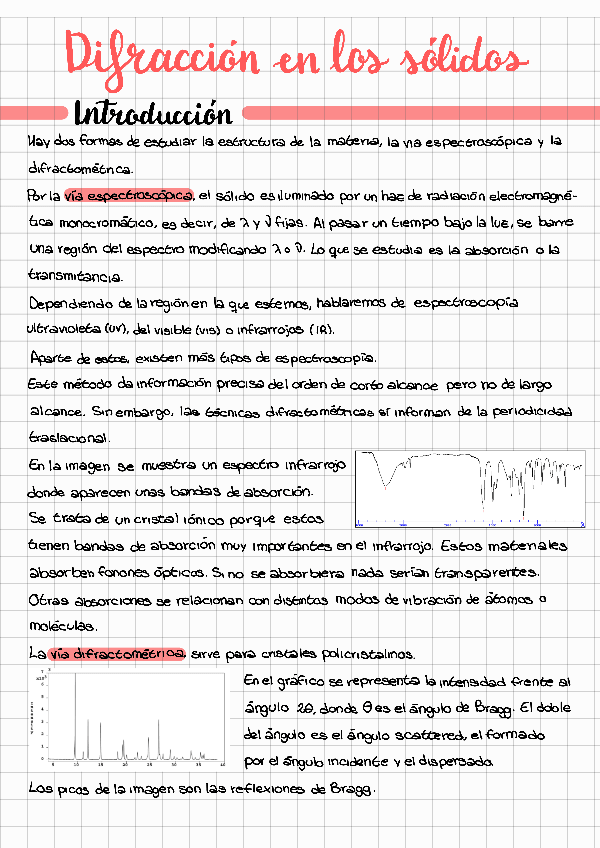 Difracción en los sólidos
Introducción
Hay dos formas de estudiar la estructura de la materia, la vía espectroscópica y la
difractométrica.
Por la vía espectroscópica, el sólido es iluminado por un haz de radiación electromagné-
tica monocromático, es decir, de λ y ν fijas. Al pasar un tiempo bajo la luz, se barre
una región del espectro modificando λ o ν. Lo que se estudia es la absorción o la
transmitancia.
Dependiendo de la región en la que estemos, hablaremos de espectroscopía
ultravioleta (UV), del visible (VIS) o infrarrojos (IR).
Aparte de estos, existen más tipos de espectroscopía.
Este método da información precisa del orden de corto alcance pero no de largo
alcance. Sin embargo, las técnicas difractométricas sí informan de la periodicidad
traslacional.
En la imagen se muestra un espectro infrarrojo
donde aparecen unas bandas de absorción.
Se trata de un cristal iónico porque estos
tienen bandas de absorción muy importantes en el infrarrojo. Estos materiales
absorben fonones ópticos. Si no se absorbiera nada serían transparentes.
Otras absorciones se relacionan con distintos modos de vibración de átomos o
moléculas.
La vía difractométrica, sirve para cristales policristalinos.
En el gráfico se representa la intensidad frente al
ángulo 2θ, donde θ es el ángulo de Bragg. El doble
del ángulo es el ángulo scattered, el formado
por el ángulo incidente y el dispersado.
7
6
5
4
3
2
1
0
5 10 15 20 25 30 35 40
Los picos de la imagen son las reflexiones de Bragg.